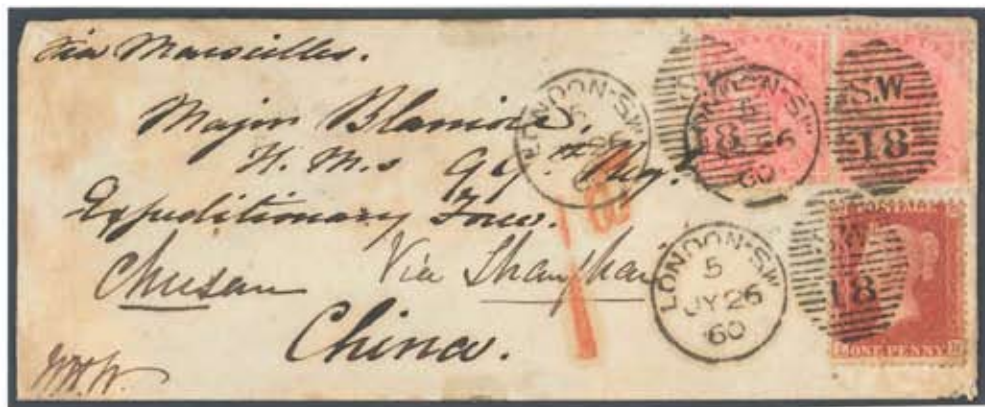 Via Marseilles.
Major
H. M.s 99th Reg.t
Expeditionary Force.
Chusan Via Shanghai
China.
LONDON-S.W
5
JY 26
60
LONDON-S.W
5
26
60
LONDON-S.W
S.W
18
18
S.W
18
ONE PENNY